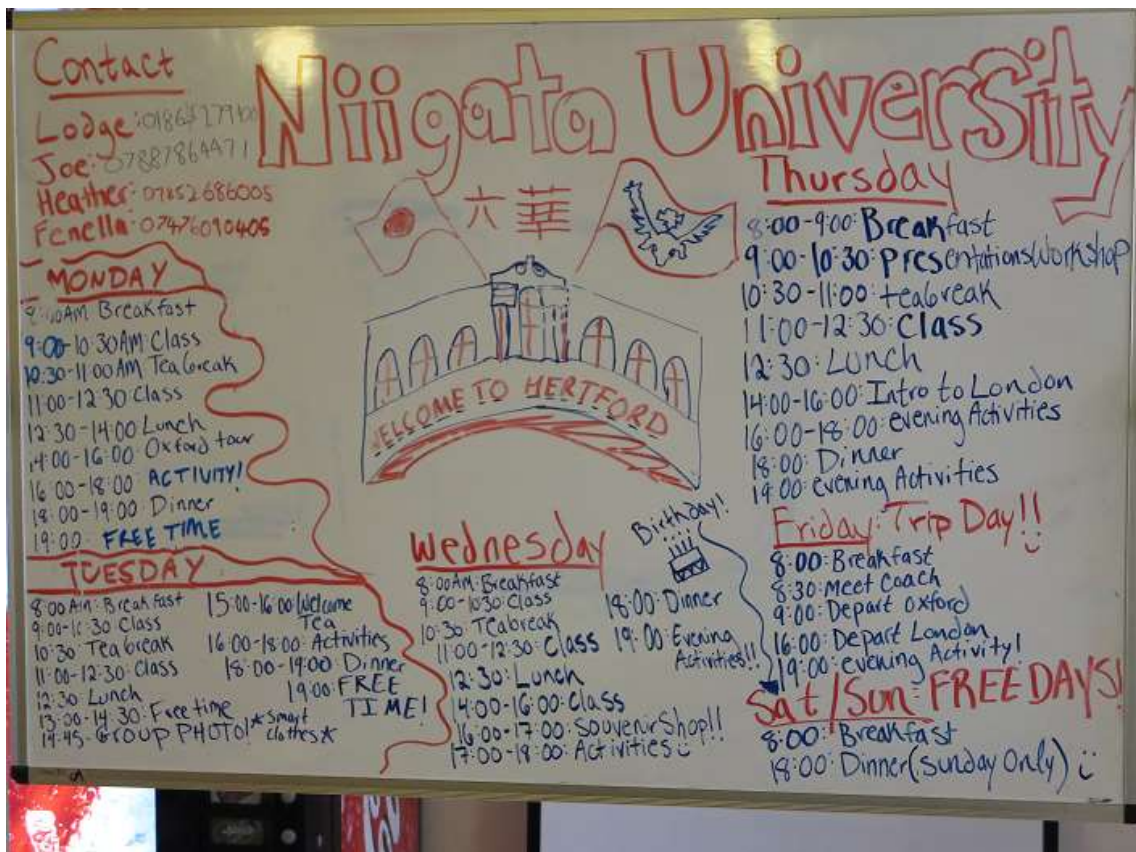 Niigata University
Contact
Lodge:
Joe: 07887864471
Heather: 07852686005
Fenella: 07476090405
六華
WELCOME TO HERTFORD
MONDAY
8:00AM Breakfast
9:00-10:30AM: Class
10:30-11:00 AM Tea break
11:00-12:30 Class
12:30-14:00 Lunch
14:00-16:00 Oxford tour
16:00-18:00: ACTIVITY!
18:00-19:00: Dinner
19:00: FREE TIME
TUESDAY
8:00 AM: Breakfast
9:00-10:30 Class
10:30 Tea break
11:00-12:30: Class
12:30 Lunch
13:00-14:30: Free time
14:45- GROUP PHOTO! *Smart
clothes*
15:00-16:00 Welcome
Tea
16:00-18:00: Activities
18:00-19:00: Dinner
19:00: FREE
TIME!
Wednesday
8:00AM: Breakfast
9:00-10:30: Class
10:30: Teabreak
11:00-12:30: Class
12:30: Lunch
14:00-16:00: Class
16:00-17:00: Souvenir Shop!!
17:00-18:00: Activities
18:00: Dinner
19:00: Evening
Activities!!
Birthday!
Thursday
8:00-9:00: Breakfast
9:00-10:30: Presentations Workshop
10:30-11:00: teabreak
11:00-12:30: Class
12:30: Lunch
14:00-16:00: Intro to London
16:00-18:00: evening Activities
18:00: Dinner
19:00: evening Activities
Friday: Trip Day!!
8:00: Breakfast
8:30: Meet Coach
9:00: Depart Oxford
16:00: Depart London
19:00: evening Activity!
Sat/Sun: FREE DAYS!
8:00: Breakfast
18:00: Dinner (Sunday Only)